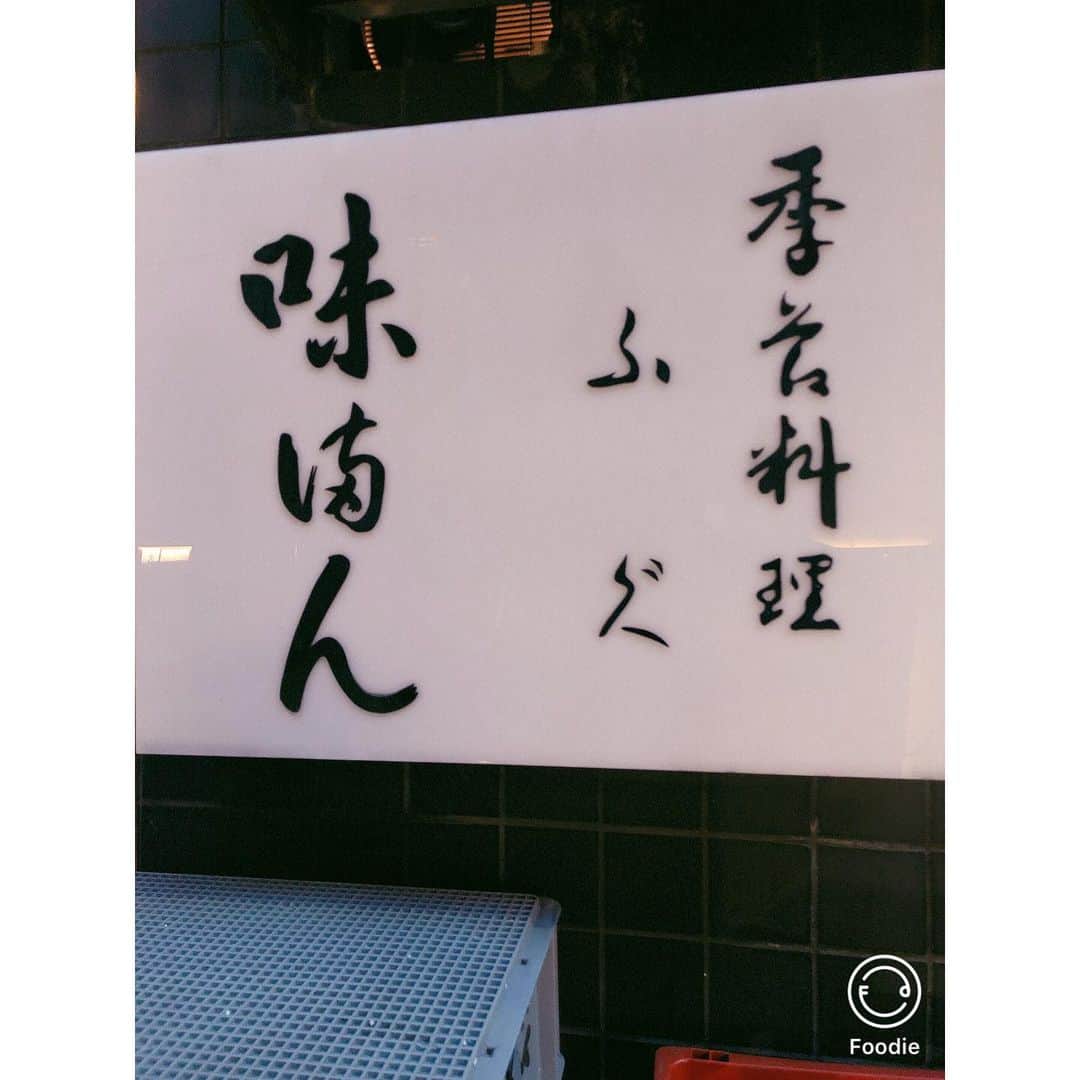 季節料理
ふぐ
味満ん
Foodie